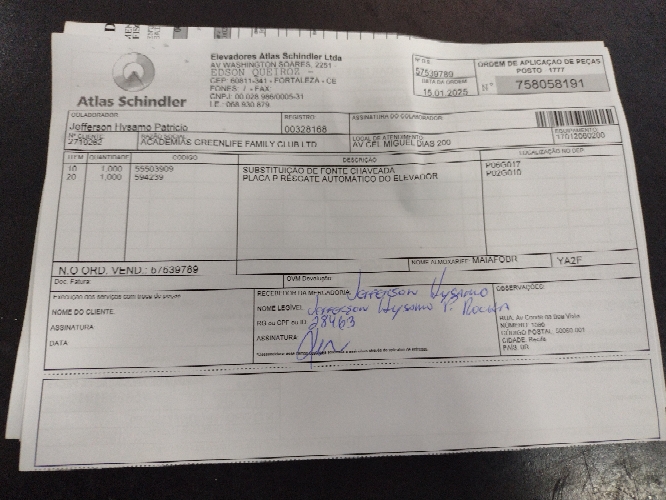 Atlas Schindler
Elevadores Atlas Schindler Ltda
AV WASHINGTON SOARES, 2251 -
EDSON QUEIROZ -
CEP: 60811-341 - FORTALEZA - CE
FONES: 7 - FAX:
CNPJ: 00.028.986/0005-31
I.E.: 068.930.879
Nº O.S.
67639789
DATA DA ORDEM
15.01.2025
ORDEM DE APLICAÇÃO DE PEÇAS
POSTO - 1777
Nº 758058191
COLABORADOR
Jefferson Hysamo Patricio
REGISTRO
00328168
ASSINATURA DO COLABORADOR
Nº CLIENTE
2710282
RAZÃO SOCIAL
ACADEMIAS GREENLIFE FAMILY CLUB LTD
LOCAL DE ATENDIMENTO
AV CEL MIGUEL DIAS 200
EQUIPAMENTO
17012060200
ITEM QUANTIDADE CÓDIGO DESCRIÇÃO LOCALIZAÇÃO NO DEP.
10 1,000 55503909 SUBSTITUIÇÃO DE FONTE CHAVEADA P06G017
20 1,000 594239 PLACA P RESGATE AUTOMATICO DO ELEVADOR P02G010
N.O ORD. VEND.: 67639789
NOME ALMOXARIFE: MAIAFODR
YA2F
Doc. Fatura:
OVM Devolução:
Execução dos serviços com troca de peças
NOME DO CLIENTE:
ASSINATURA:
DATA:
RECEBEDOR DA MERCADORIA: Jefferson Hysamo
NOME LEGÍVEL: Jefferson Hysamo P.
RG ou CPF ou ID: 28463
ASSINATURA:
OBSERVAÇÕES:
RUA: Av Conde da Boa Vista
CÓDIGO POSTAL: 50060-001
CIDADE: Recife
PAIS: BR